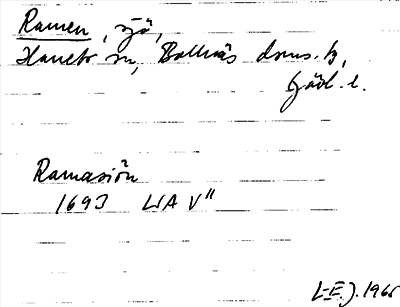 Ramen, sjö,
Hanebo sn, Bollnäs doms. b,
Gävl. l.
Ramasiön
1693 LSA V"
L-E.J. 1965